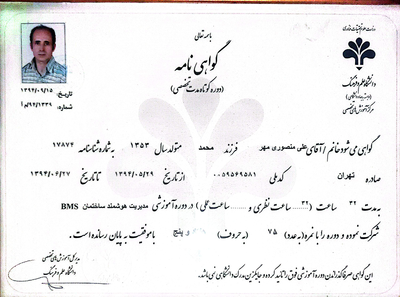 باسمه تعالی
گواهی نامه
(دوره کوتاه مدت تخصصی)
وزارت علوم تحقیقات و فناوری
دانشگاه علم و فرهنگ
مرکز آموزش‌های تخصصی
تاریخ: ۱۳۹۴/۰۹/۱۵
شماره:
گواهی می شود خانم / آقای علی منصوری مهر فرزند محمد متولد سال ۱۳۵۳ به شماره شناسنامه ۱۷۸۷۴
صادره تهران کد ملی ۰۰۵۹۵۶۹۵۸۱ از تاریخ ۱۳۹۴/۰۵/۲۹ تا تاریخ ۱۳۹۴/۰۶/۲۷
به مدت ۳۲ ساعت (۳۲ ساعت نظری و ساعت عملی) در دوره آموزشی مدیریت هوشمند ساختمان BMS
شرکت نموده و دوره را با نمره (به عدد) ۷۵ (به حروف) و پنج با موفقیت به پایان رسانده است.
مدیر کل آموزش‌های تخصصی
دانشگاه علم و فرهنگ
این گواهی صرفا گذراندن دوره آموزشی فوق را تایید کرده و جایگزین مدرک دانشگاهی نمی باشد.